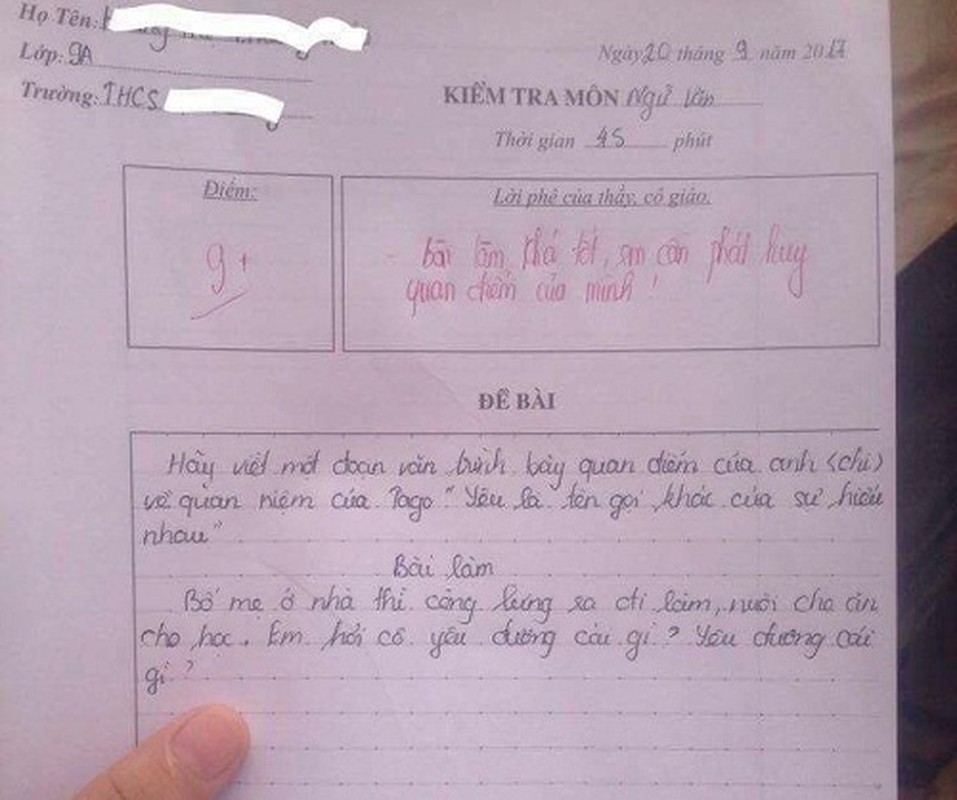 Họ Tên:
Lớp: 9A
Trường: THCS
Ngày 20 tháng 9 năm 2017
KIỂM TRA MÔN Ngữ Văn
Thời gian 45 phút
Điểm:
9+
Lời phê của thầy, cô giáo.
- bài làm khá tốt, em cần phát huy
quan điểm của mình!
ĐỀ BÀI
Hãy viết một đoạn văn trình bày quan điểm của anh (chị)
về quan niệm của Tago "Yêu là tên gọi khác của sự hiểu
nhau"
Bài làm
Bố mẹ ở nhà thì còng lưng ra đi làm, nuôi cho ăn
cho học. Em hỏi cô yêu đương cái gì? Yêu đương cái
gì?